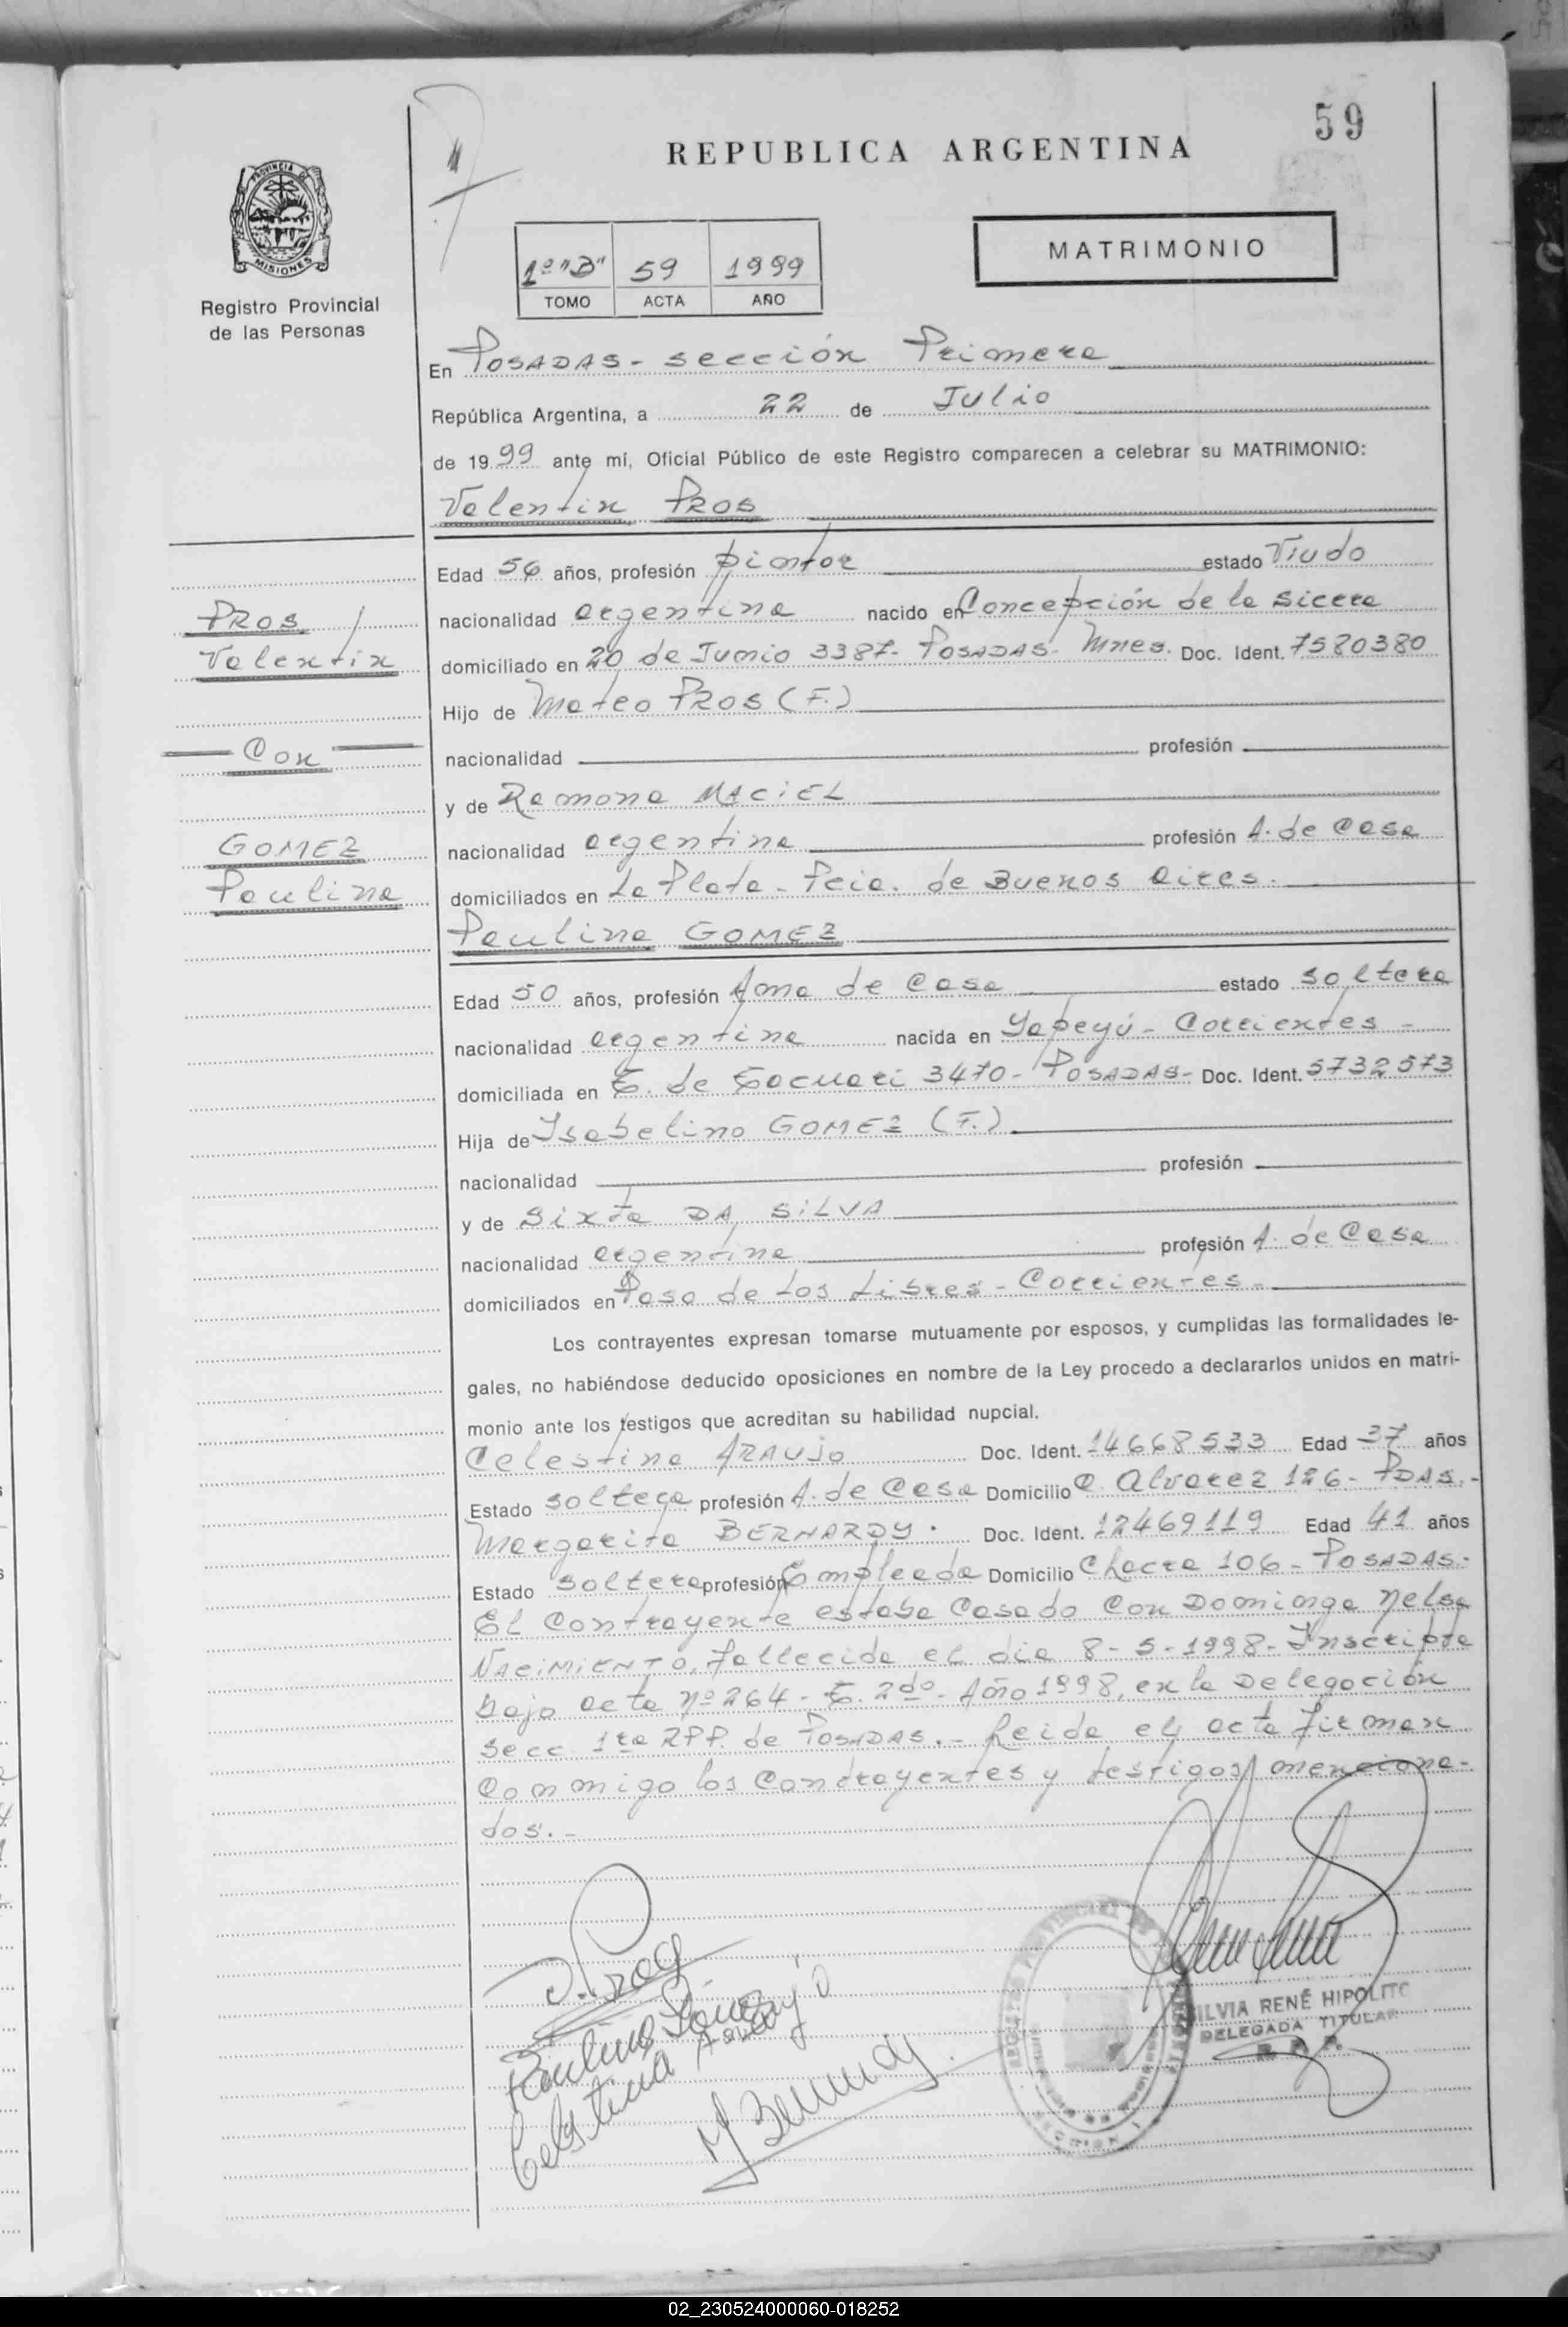 59
REPUBLICA ARGENTINA
PROVINCIA DE
MISIONES
Registro Provincial
de las Personas
1º "B" 59 1999
TOMO ACTA AÑO
MATRIMONIO
En POSADAS - sección Primera
República Argentina, a 22 de Julio
de 19 99 ante mi, Oficial Público de este Registro comparecen a celebrar su MATRIMONIO:
Valentin PROS
Edad 56 años, profesión pintor estado Viudo
nacionalidad argentina nacido en Concepción de la Sierra
domiciliado en 20 de Junio 3387- POSADAS- Mnes. Doc. Ident. 7580380
Hijo de Mateo PROS (F.)
nacionalidad profesión
y de Ramona MACIEL
nacionalidad argentina profesión A. de Casa
domiciliados en La Plata - Pcia. de Buenos Aires.
PROS
Valentin
Con
GOMEZ
Paulina
Paulina GOMEZ
Edad 50 años, profesión Ama de Casa estado soltera
nacionalidad argentina nacida en Yapeyú - Corrientes -
domiciliada en T. de Tacuari 3470- POSADAS- Doc. Ident. 5732573
Hija de Isabelino GOMEZ (F.)
nacionalidad profesión
y de Sixta DA SILVA
nacionalidad argentina profesión A. de Casa
domiciliados en Paso de Los Libres - Corrientes -
Los contrayentes expresan tomarse mutuamente por esposos, y cumplidas las formalidades le-
gales, no habiéndose deducido oposiciones en nombre de la Ley procedo a declararlos unidos en matri-
monio ante los testigos que acreditan su habilidad nupcial.
Celestina ARAUJO Doc. Ident. 14668533 Edad 37 años
Estado soltera profesión A. de Casa Domicilio C. Alvarez 126- PDAS.-
Margarita BERNARDY. Doc. Ident. 12469119 Edad 41 años
Estado soltera profesión Empleada Domicilio Chacra 106 - POSADAS.-
El Contrayente estaba Casado Con Dominga Nelsa
NACIMIENTO, fallecida el día 8-5-1998- Inscripta
bajo acta Nº 264- T. 2do- Año 1998, en la Delegación
Secc. 1ra RPP. de POSADAS.- Leida el acta firman
Conmigo los Contrayentes y testigos menciona-
dos.-
V. Pros
Paulina Gomez
Celestina Araujo
M Bernardy
SILVIA RENÉ HIPOLITO
DELEGADA TITULAR
R. P. P.
02_230524000060-018252